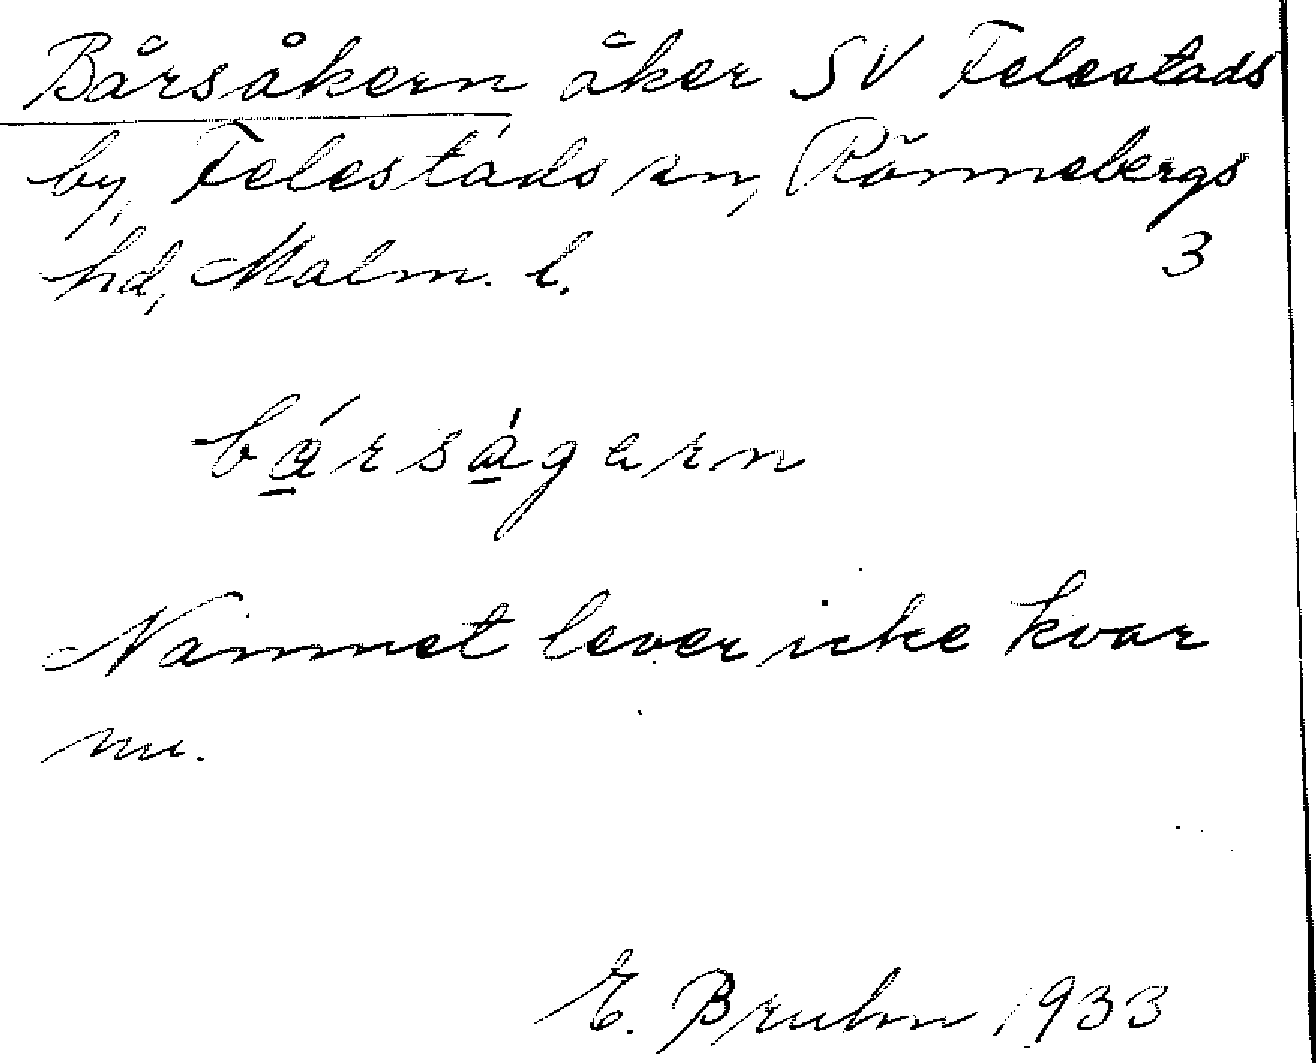 Bårsåkern åker SV Felestads
by, Felestads sn, Rönnebergs
hd, Malm. l. 3
bá̱rsá̱gern
Namnet lever icke kvar
nu.
E. Bruhn 1933